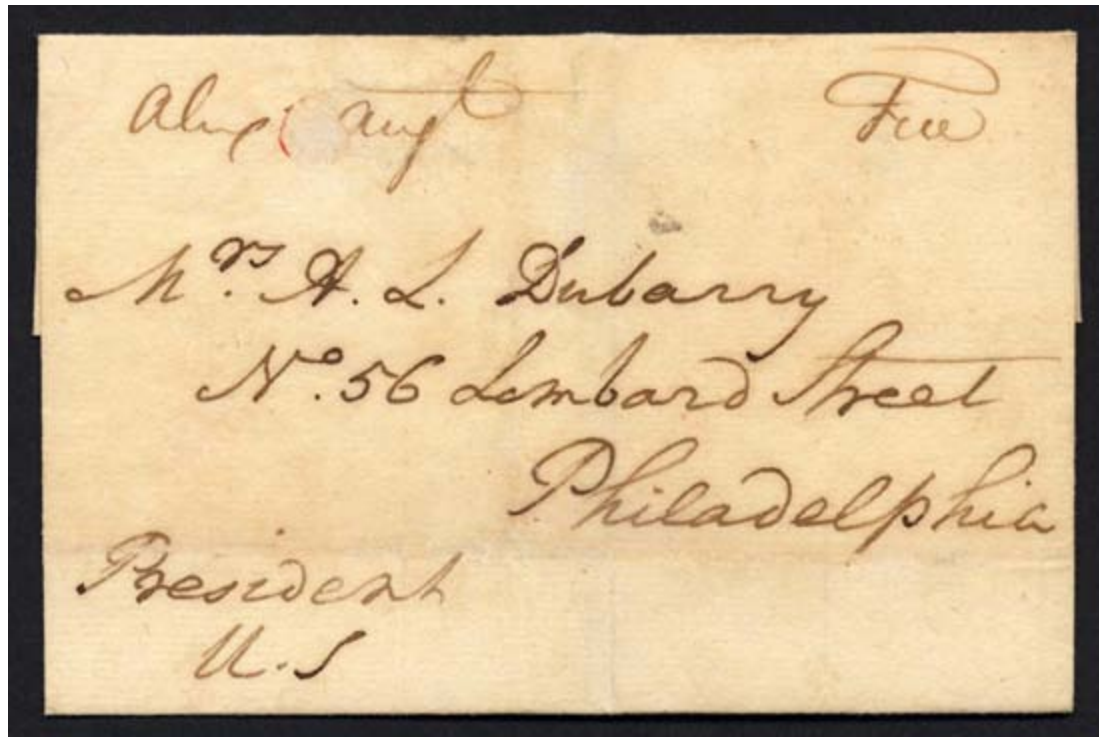 Alexa Augt Free
Mrs. A. L. Dubarry
No. 56 Lombard Street
Philadelphia
President
U.S